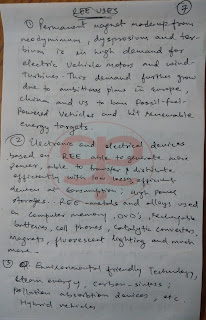 REE USES
7
1) Permanent magnet made up from
neodymium, dysprosium and ter-
bium is in high demand for
electric vehicle motors and wind-
turbines. This demand further grow
due to ambitious plans in Europe,
China and US to ban fossil-fuel-
powered vehicles and hit renewable
energy targets.
2) Electronic and electrical devices
based on REE able to generate more
power, able to transfer & distribute
efficiently with low loss, efficient
devices at consumption, high power
storages. REE metals and alloys used
in computer memory, DVD's, rechargeable
batteries, cell phones, catalytic converters,
magnets, fluorescent lighting and much
more.
3) Environmental friendly Technology,
steam energy, carbon-sinters,
pollution absorbtion devices, etc.
Hybrid vehicles